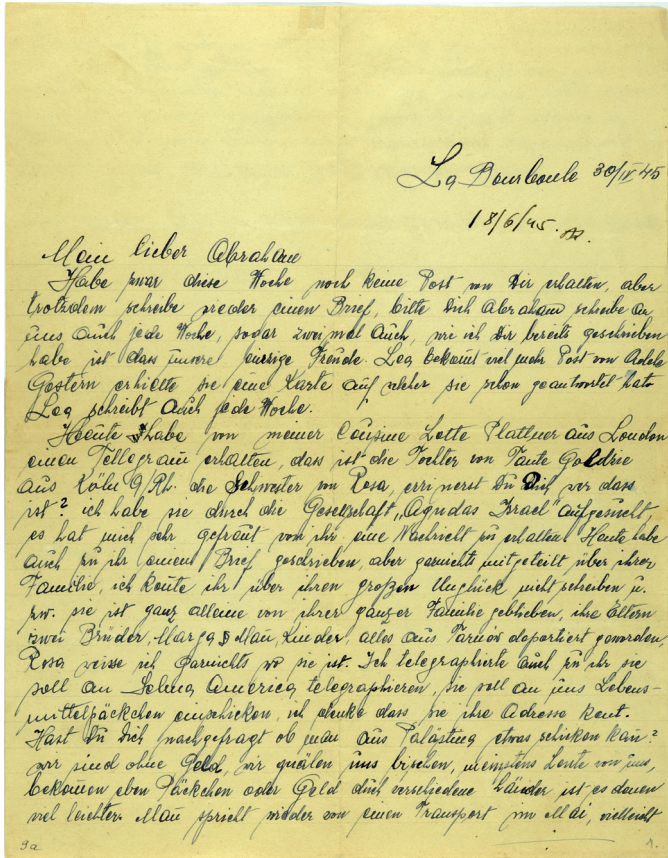 La Bourboule 30/IV 45
18/6/45.
Mein lieber Abraham
Habe zwar diese Woche noch keine Post von Dir erhalten, aber
trotzdem schreibe wieder einen Brief, bitte Dich Abraham schreibe an
uns auch jede Woche, sogar zweimal auch, wie ich Dir bereits geschrieben
habe ist dass unsere einzige Freude. Lea bekomt viel mehr Post von Adele
Gestern erhielte sie eine Karte auf welcher sie schon geantwortet hat.
Lea schreibt auch jede Woche.
Heute habe von meiner Cousine Lotte Plattner aus London
einen Tellegram erhalten, dass ist die Tochter von Tante Goldzie
aus Köln a/Rh. die Schwester von Rosa, errinerst Du Dich wer dass
ist? ich habe sie durch die Gesellschaft „Agudas Israel" aufgesucht
es hat mich sehr gefreut von ihr eine Nachricht zu erhalten Heute habe
auch zu ihr einen Brief geschrieben, aber garnichts mitgeteilt über ihrer
Familie, ich konte ihr über ihren großen Unglück nicht schreiben u.
zw. sie ist ganz alleine von ihrer ganzer Familie geblieben, ihre Eltern
zwei Brüder, Marga Mau, Kinder alles aus Tarnów deportiert geworden,
Rosa weisse ich garnichts wo sie ist. Ich telegraphierte auch zu ihr sie
soll an Selma America telegraphieren, sie soll an uns Lebens-
mittelpäckchen einschicken, ich denke dass sie ihre Adresse kent.
Hast Du Dich nachgefragt ob man aus Palästina etwas schicken kan?
wir sind ohne Geld, wir quälen uns bischen, meinstens Leute von uns,
bekommen eben Päckchen oder Geld durch verschiedene Länder ist es denen
viel leichter. Man spricht wieder von einen Transport im Mai, vielleicht
9a
1.